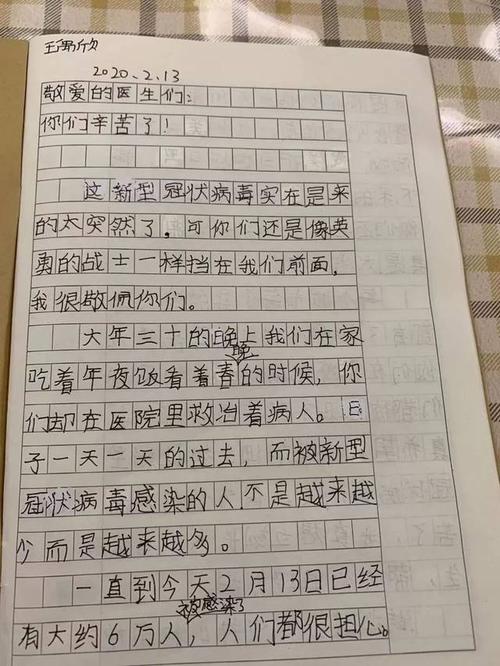 王禹欣
2020.2.13
敬爱的医生们:
你们辛苦了!
这新型冠状病毒实在是来
的太突然了。可你们还是像英
勇的战士一样挡在我们前面,
我很敬佩你们。
大年三十的晚上我们在家
吃着年夜饭看着春晚的时候,你
们却在医院里救治着病人。日
子一天一天的过去,而被新型
冠状病毒感染的人不是越来越
少而是越来越多。
一直到今天2月13日已经
有大约6万人被感染了,人们都很担心。